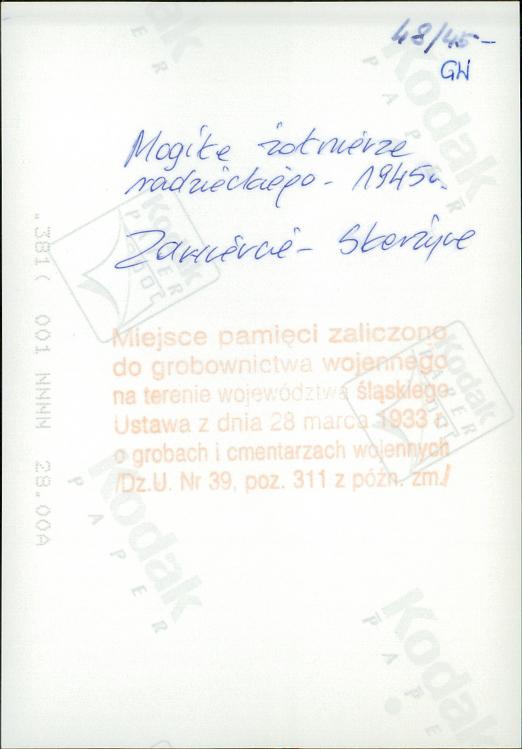 48/45-
GW
Mogiła żołnierza
radzieckiego - 1945r.
Zawiercie - Skarżyce
Miejsce pamięci zaliczono
do grobownictwa wojennego
na terenie województwa śląskiego
Ustawa z dnia 28 marca 1933 r.
o grobach i cmentarzach wojennych
/Dz.U. Nr 39, poz. 311 z późn. zm./
001 NNNN 28.00A
Kodak
PAPER
Kodak
PAPER
Kodak
Kodak
PAPER
Kodak
PAPER
Kodak
PAPER